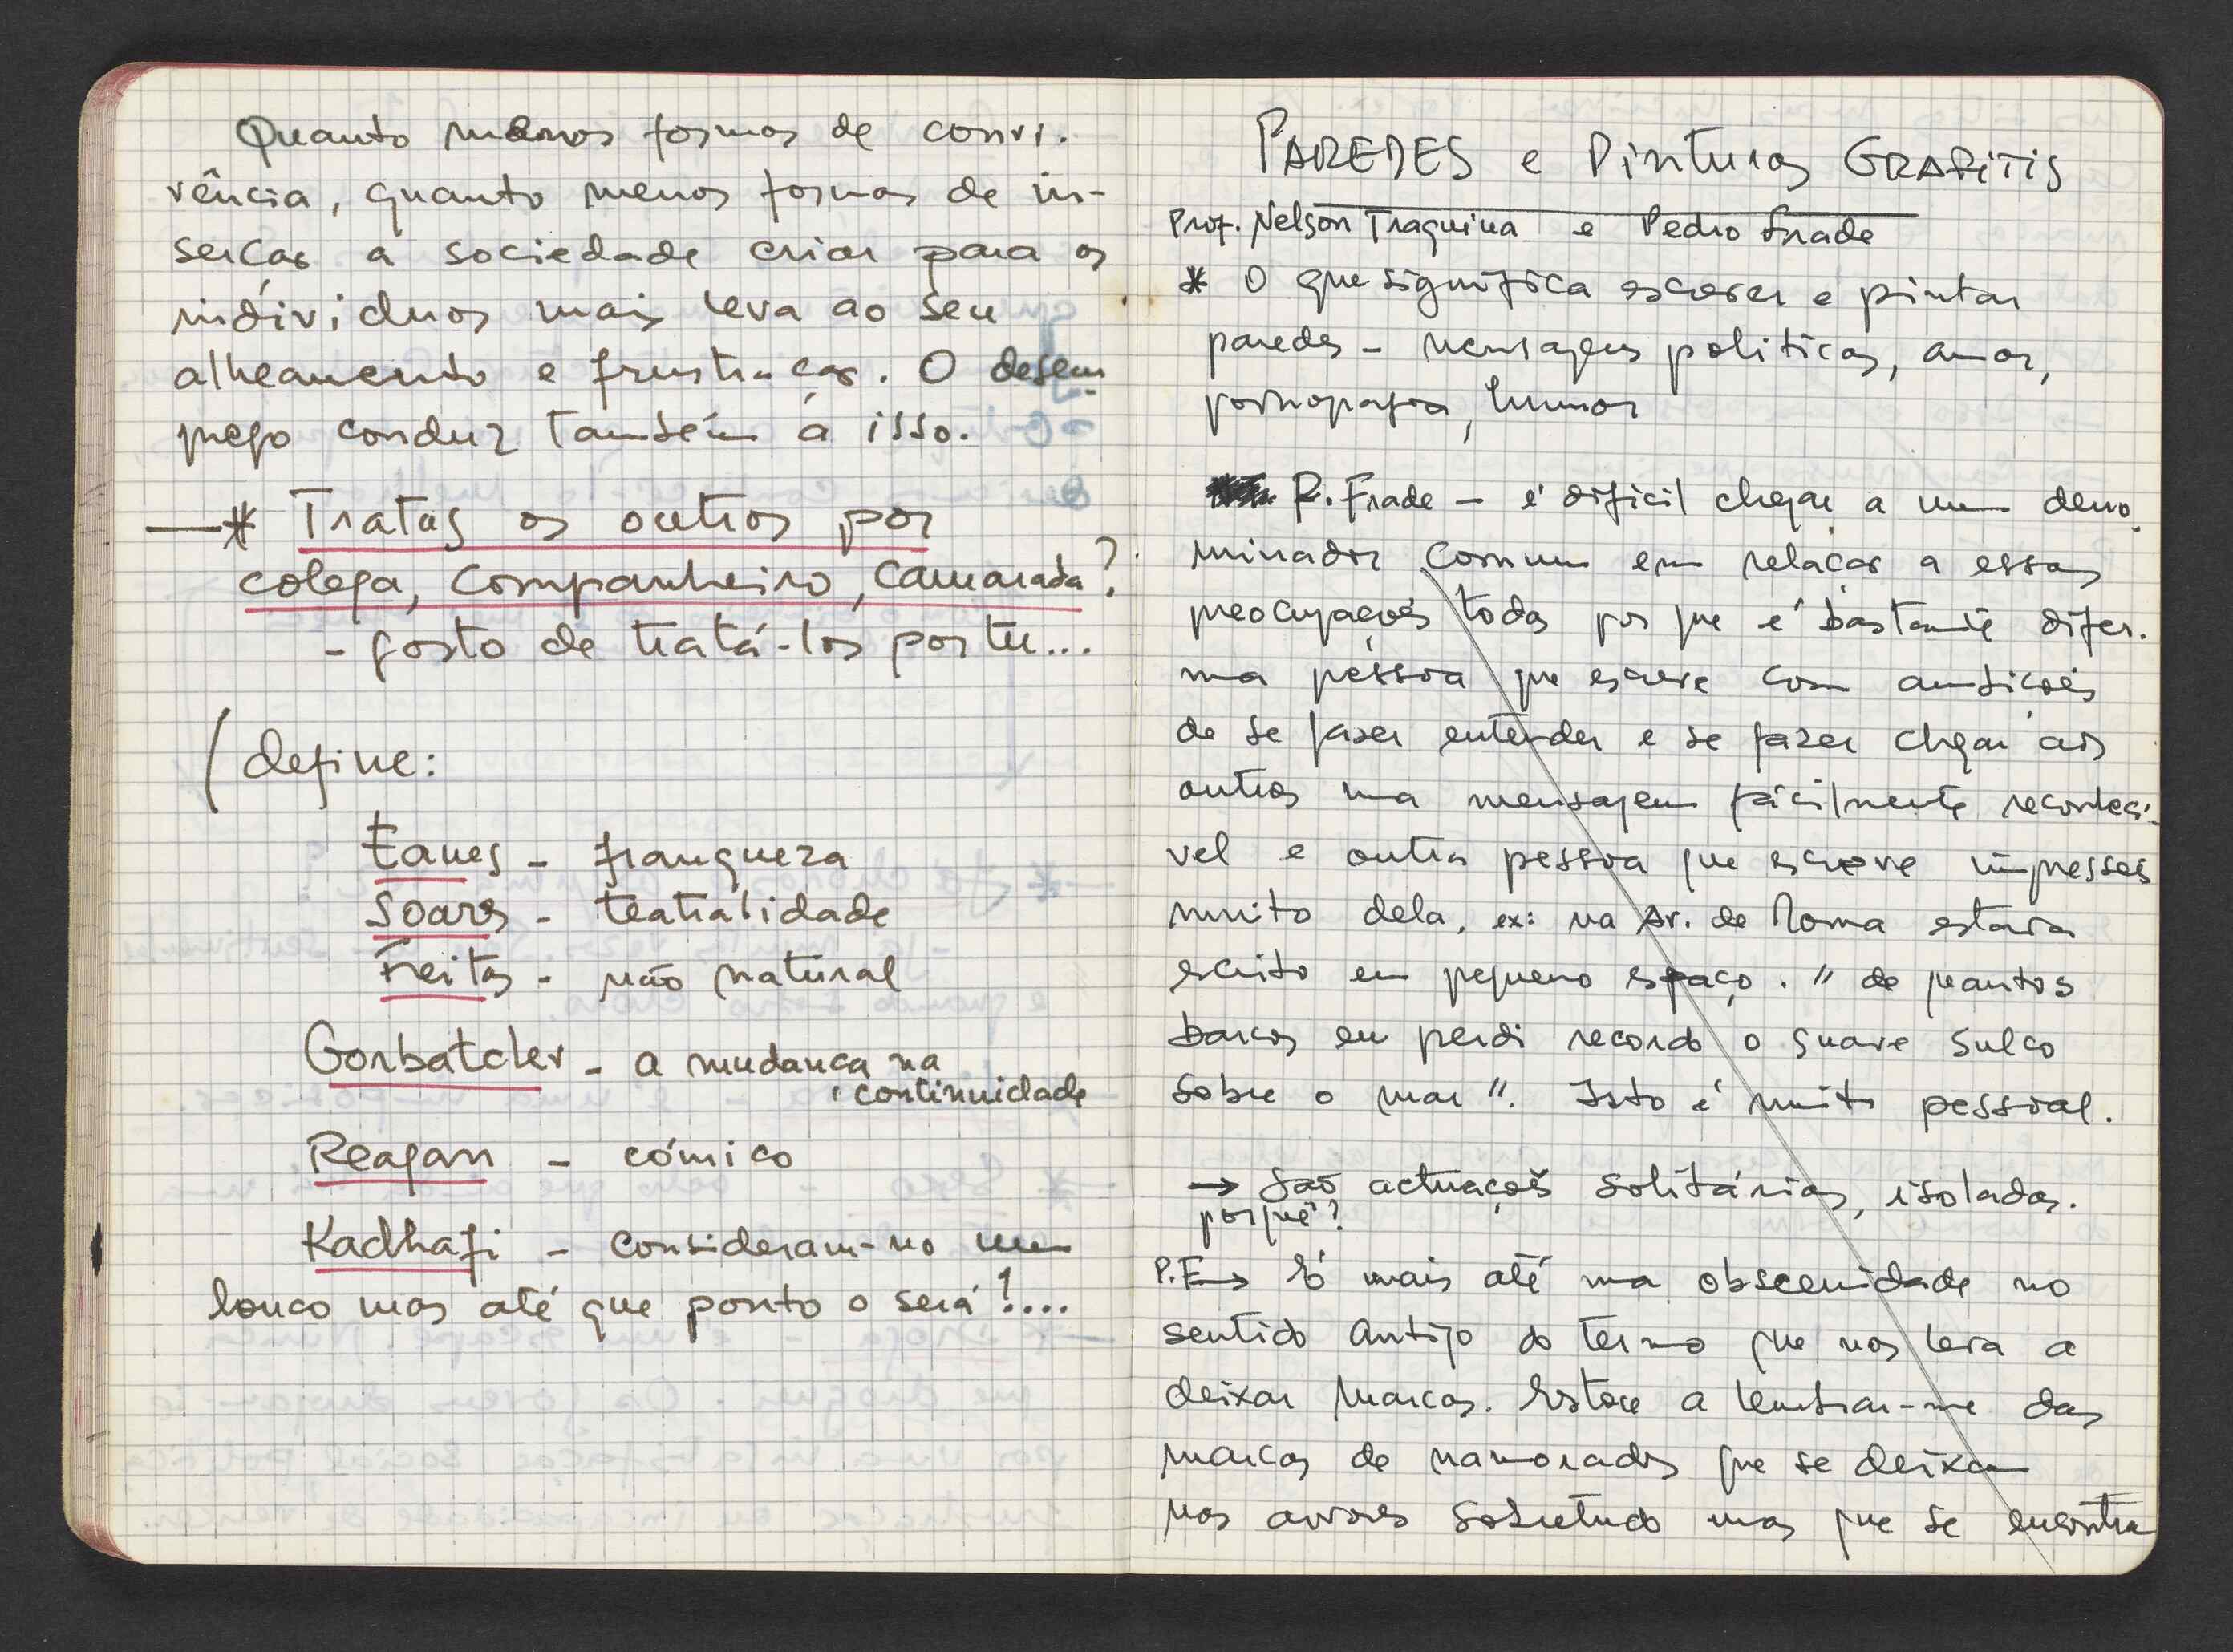 Quanto menos formas de convi-
vência, quanto menos formas de in-
serção a sociedade criar para os
indivíduos mais leva ao seu
alheamento e frustração. O desem-
prego conduz também a isso.
—* Tratas os outros por
colega, companheiro, camarada?
- gosto de tratá-los por tu...
(define:
Eanes - franqueza
Soares - teatralidade
Freitas - não natural
Gorbatchev - a mudança na
continuidade
Reagan - cómico
Kadhafi - consideram-no um
louco mas até que ponto o será!....
PAREDES e Pinturas GRAFITIS
Prof. Nelson Traquina e Pedro Frade
* O que significa escrever e pintar
paredes - mensagens politicas, amor,
pornografia, humor
P. Frade - é dificil chegar a um deno-
minador comum em relação a essas
preocupações todas por que é bastante difer.
uma pessoa que escreve com ambições
de se fazer entender e se fazer chegar aos
outros uma mensagem fácilmente reconheci-
vel e outra pessoa que escreve impressões
muito dela, ex: na Av. de Roma estava
escrito em pequeno espaço. "de quantos
barcos eu perdi recordo o suave sulco
sobre o mar". Isto é muito pessoal.
→ São actuações solitárias, isoladas.
porquê?
P.F → É mais até uma obscenidade no
sentido antigo do termo que nos leva a
deixar marcas. Estou a lembrar-me das
marcas de namorados que se deixam
nas arvores sobretudo mas que se encontra